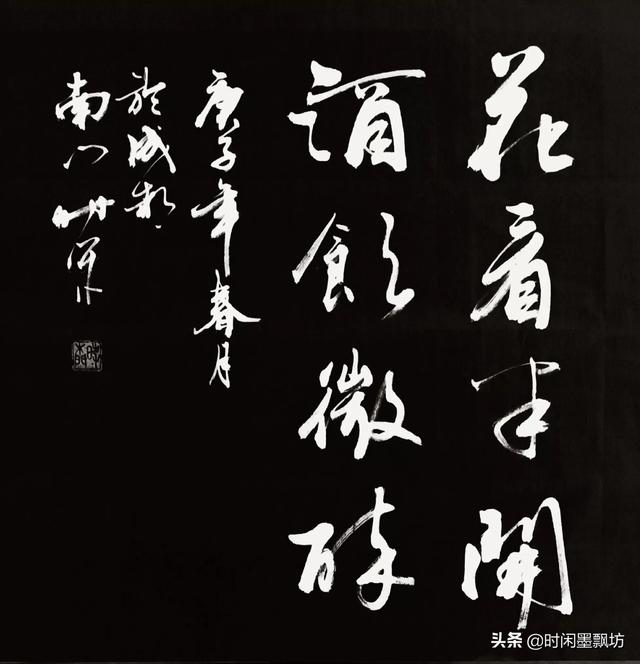 花看半開
酒飲微醉
庚子年春月
於成都
南門
头条 @时闲墨飘坊